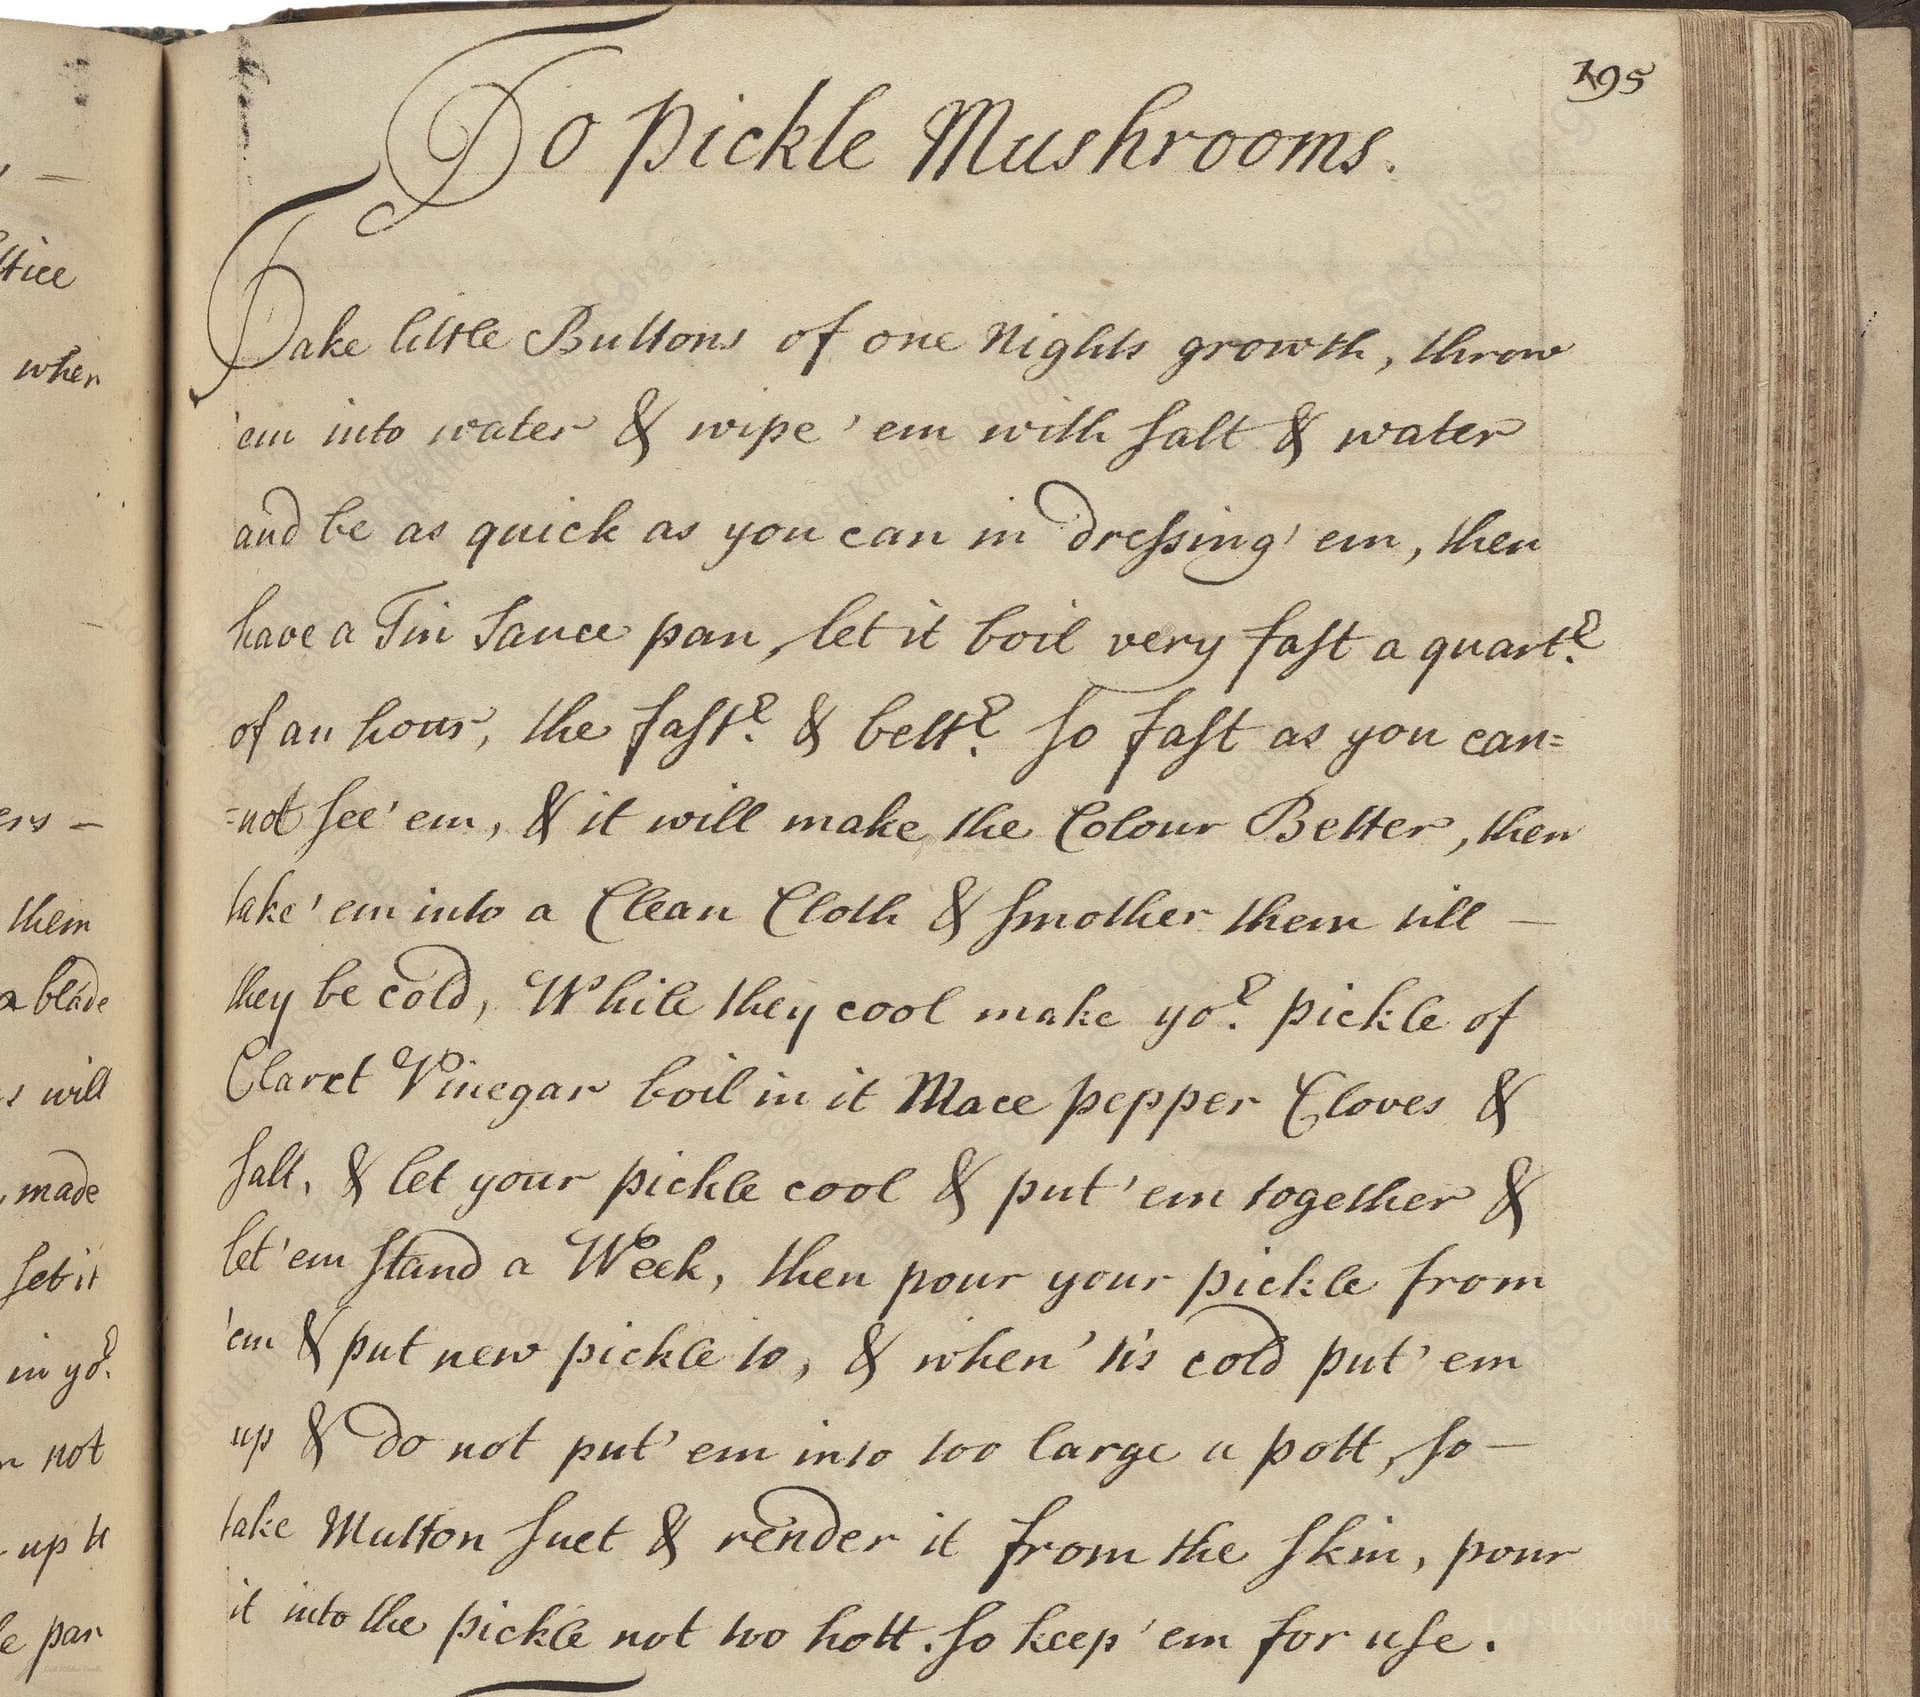 195
To pickle Mushrooms.
Take little Buttons of one Nights growth, throw
'em into water & wipe 'em with salt & water
and be as quick as you can in dressing 'em, then
have a Tin Sauce pan, let it boil very fast a quartr.
of an hour, the fastr. & bettr. so fast as you can=
=not see 'em, & it will make the Colour Better, then
take 'em into a Clean Cloth & smother them till —
they be cold, While they cool make yor. pickle of
Claret Vinegar boil in it Mace pepper Cloves &
salt, & let your pickle cool & put 'em together &
let 'em stand a Week, then pour your pickle from
'em & put new pickle to, & when 'tis cold put 'em
up & do not put 'em into too large a pott, so —
take Mutton suet & render it from the skin, pour
it into the pickle not too hott. so keep 'em for use.
when
ers —
them
a blade
will
made
set it
in yor.
not
up
pan